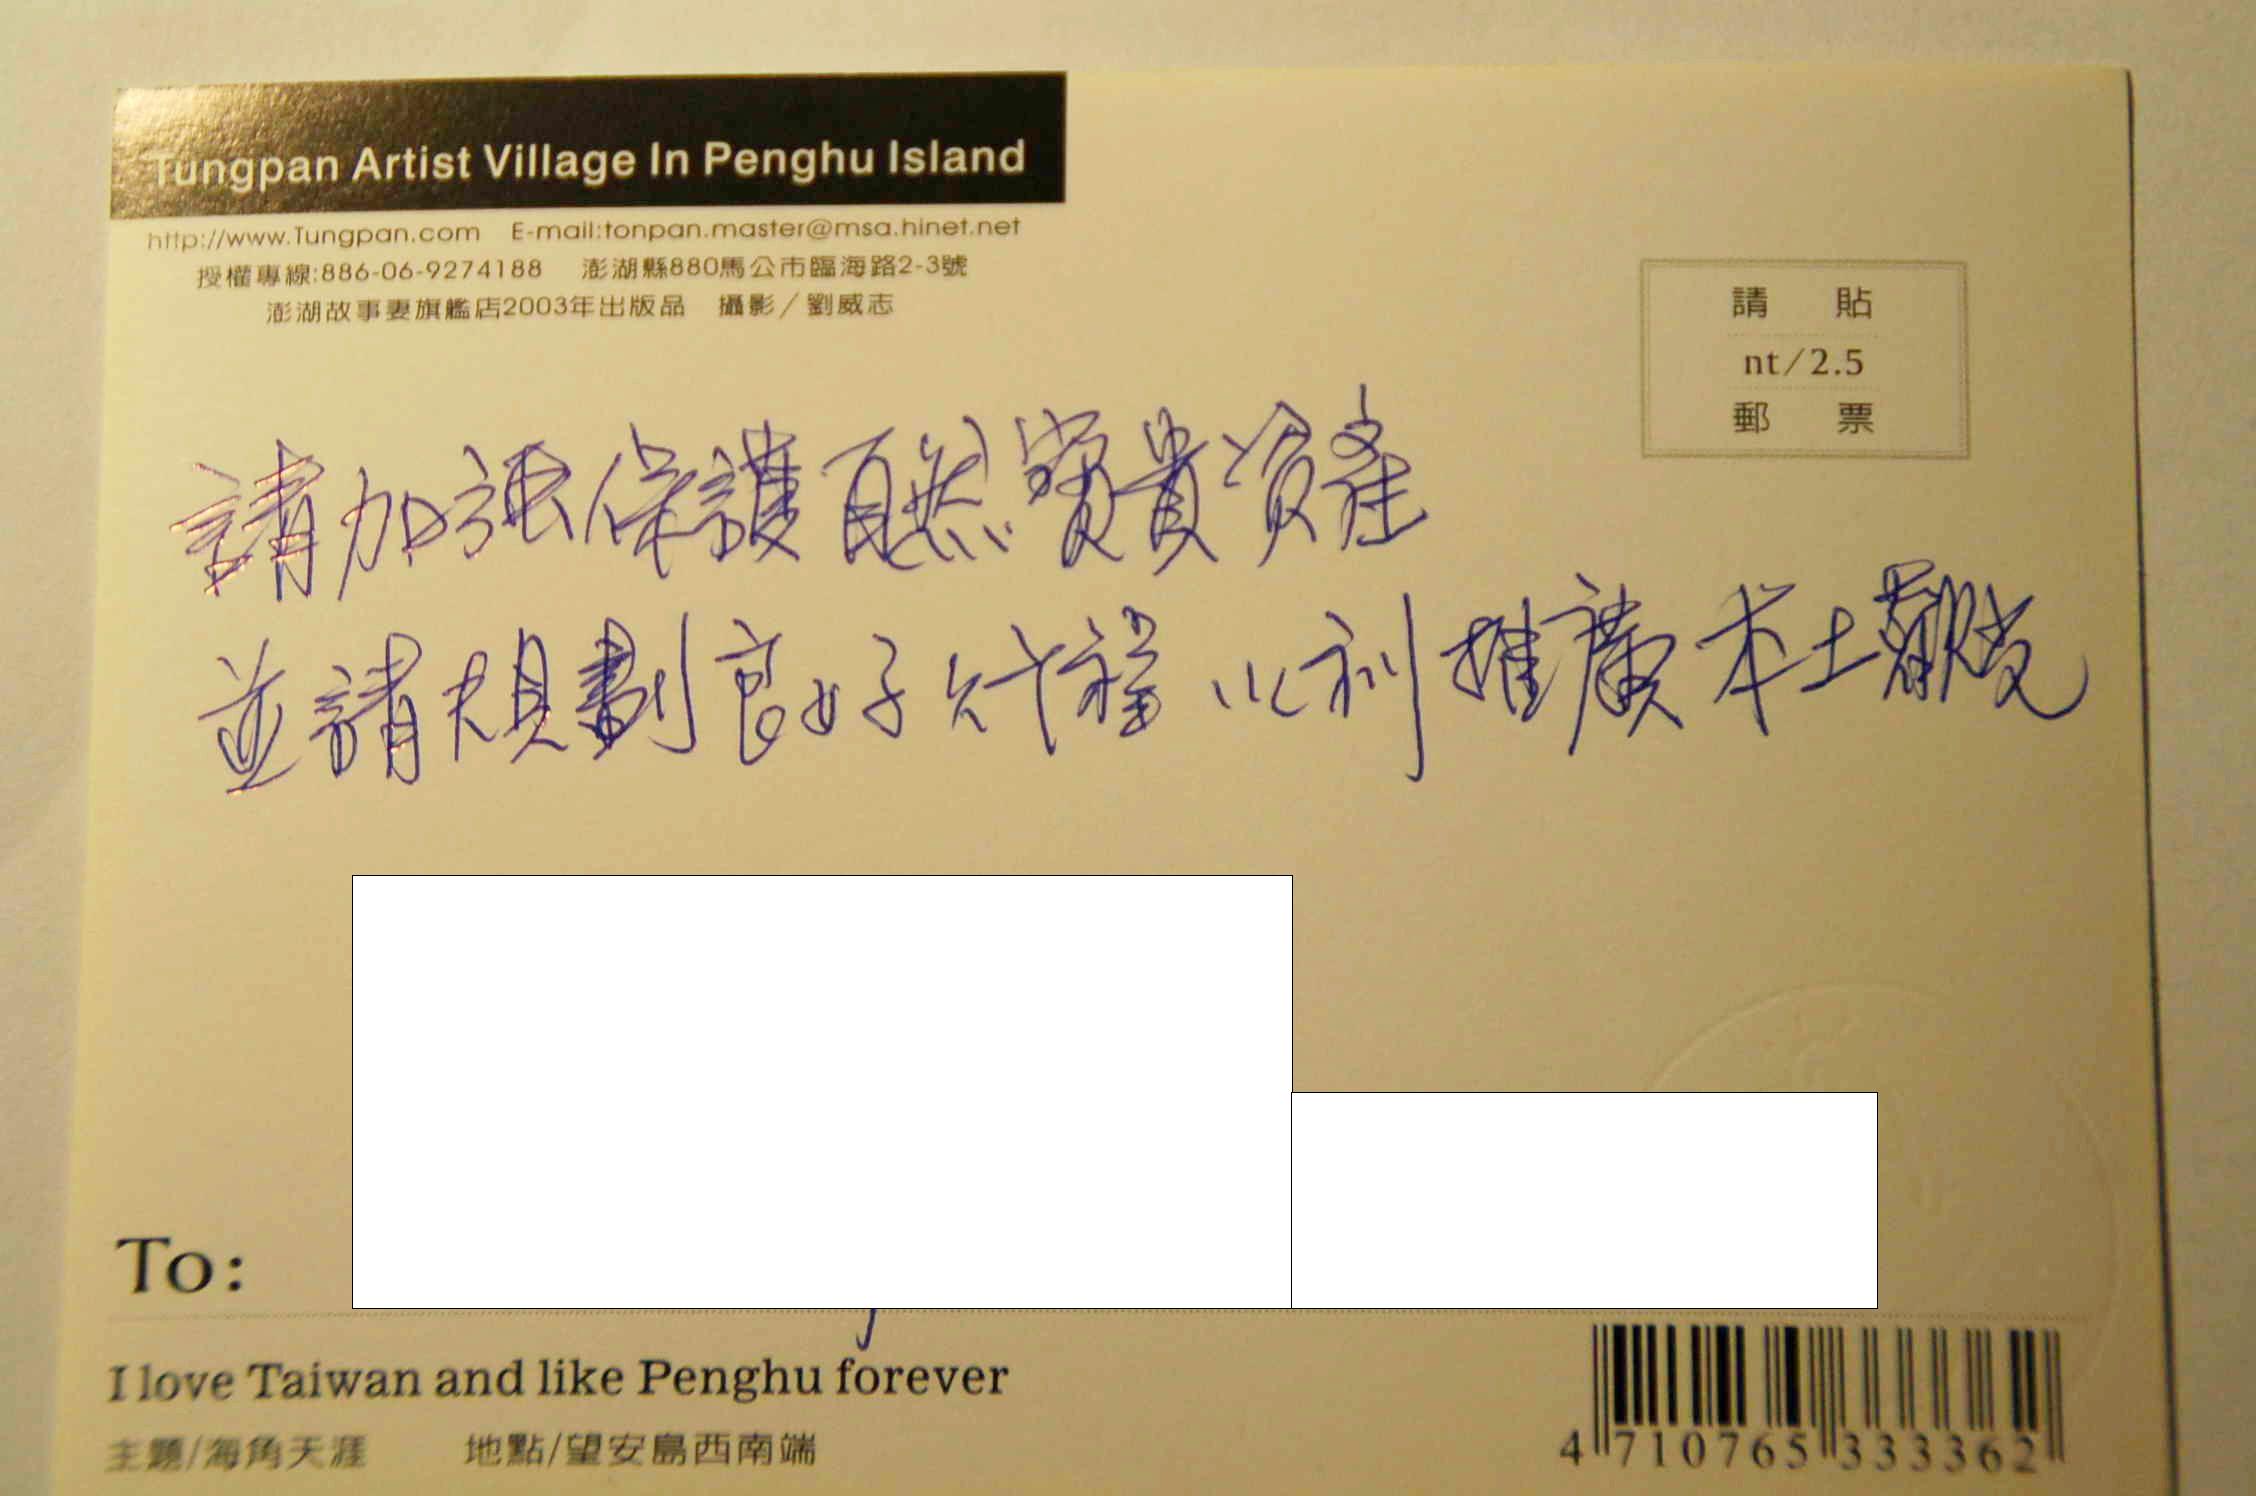 Tungpan Artist Village In Penghu Island
http://www.Tungpan.com E-mail:tonpan.master@msa.hinet.net
授權專線:886-06-9274188 澎湖縣880馬公市臨海路2-3號
澎湖故事妻旗艦店2003年出版品 攝影／劉威志
請貼
nt/2.5
郵票
請加強保護自然寶貴資產
並請規劃良好行程以利推廣本土觀光
To:
I love Taiwan and like Penghu forever
主題/海角天涯 地點/望安島西南端
4710765333362